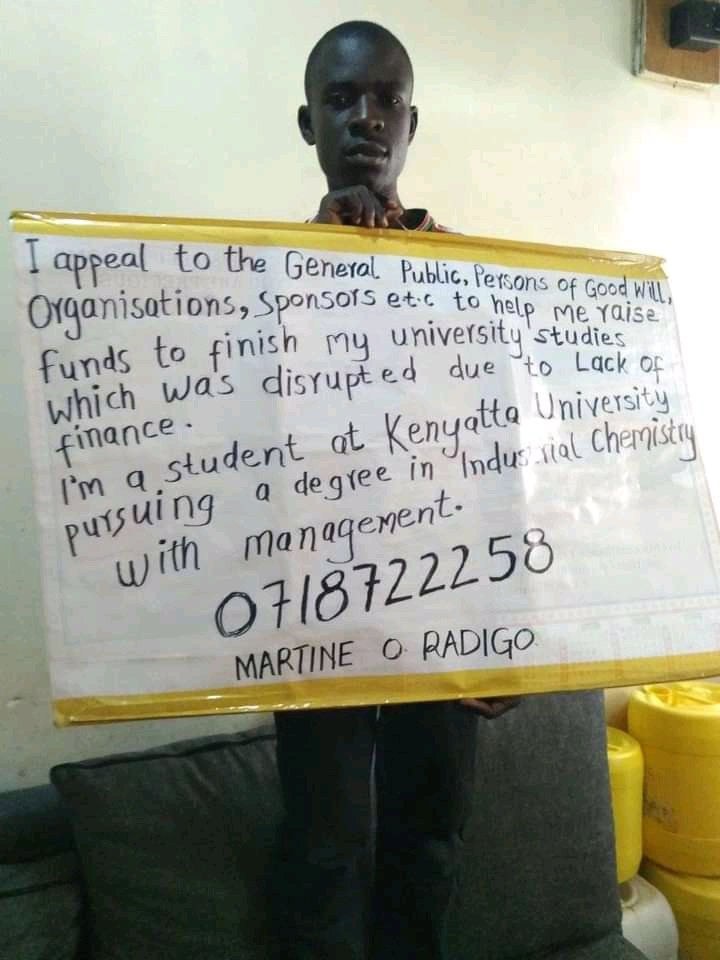 I appeal to the General Public, Persons of Good Will,
Organisations, Sponsors e.t.c to help me raise
funds to finish my university studies
which was disrupted due to Lack of
finance.
I'm a student at Kenyatta University
pursuing a degree in Industrial Chemistry
with management.
0718722258
MARTINE O. RADIGO